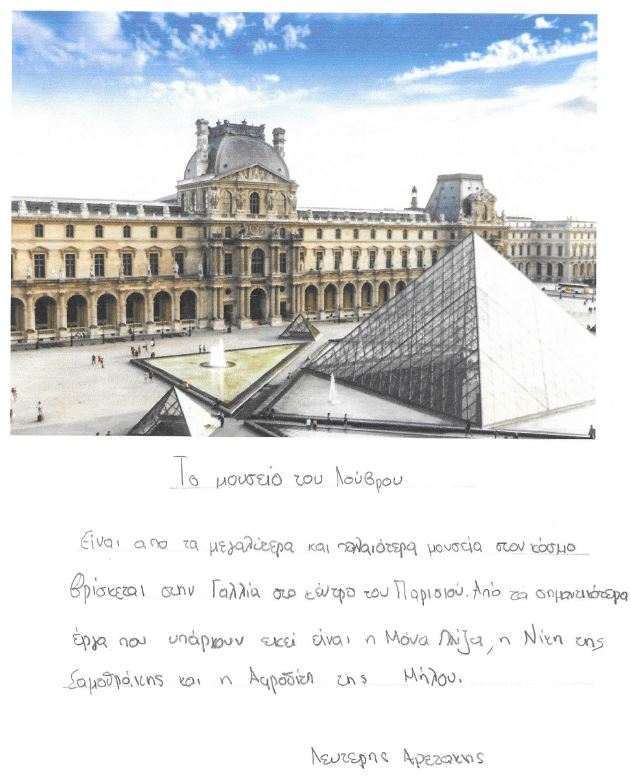 Το μουσείο του Λούβρου
Είναι από τα μεγαλύτερα και παλαιότερα μουσεία στον κόσμο
βρίσκεται στην Γαλλία στο κέντρο του Παρισιού. Από τα σημαντικότερα
έργα που υπάρχουν εκεί είναι η Μόνα Λίζα, η Νίκη της
Σαμοθράκης και η Αφροδίτη της Μήλου.
Λευτέρης Αρετάκης